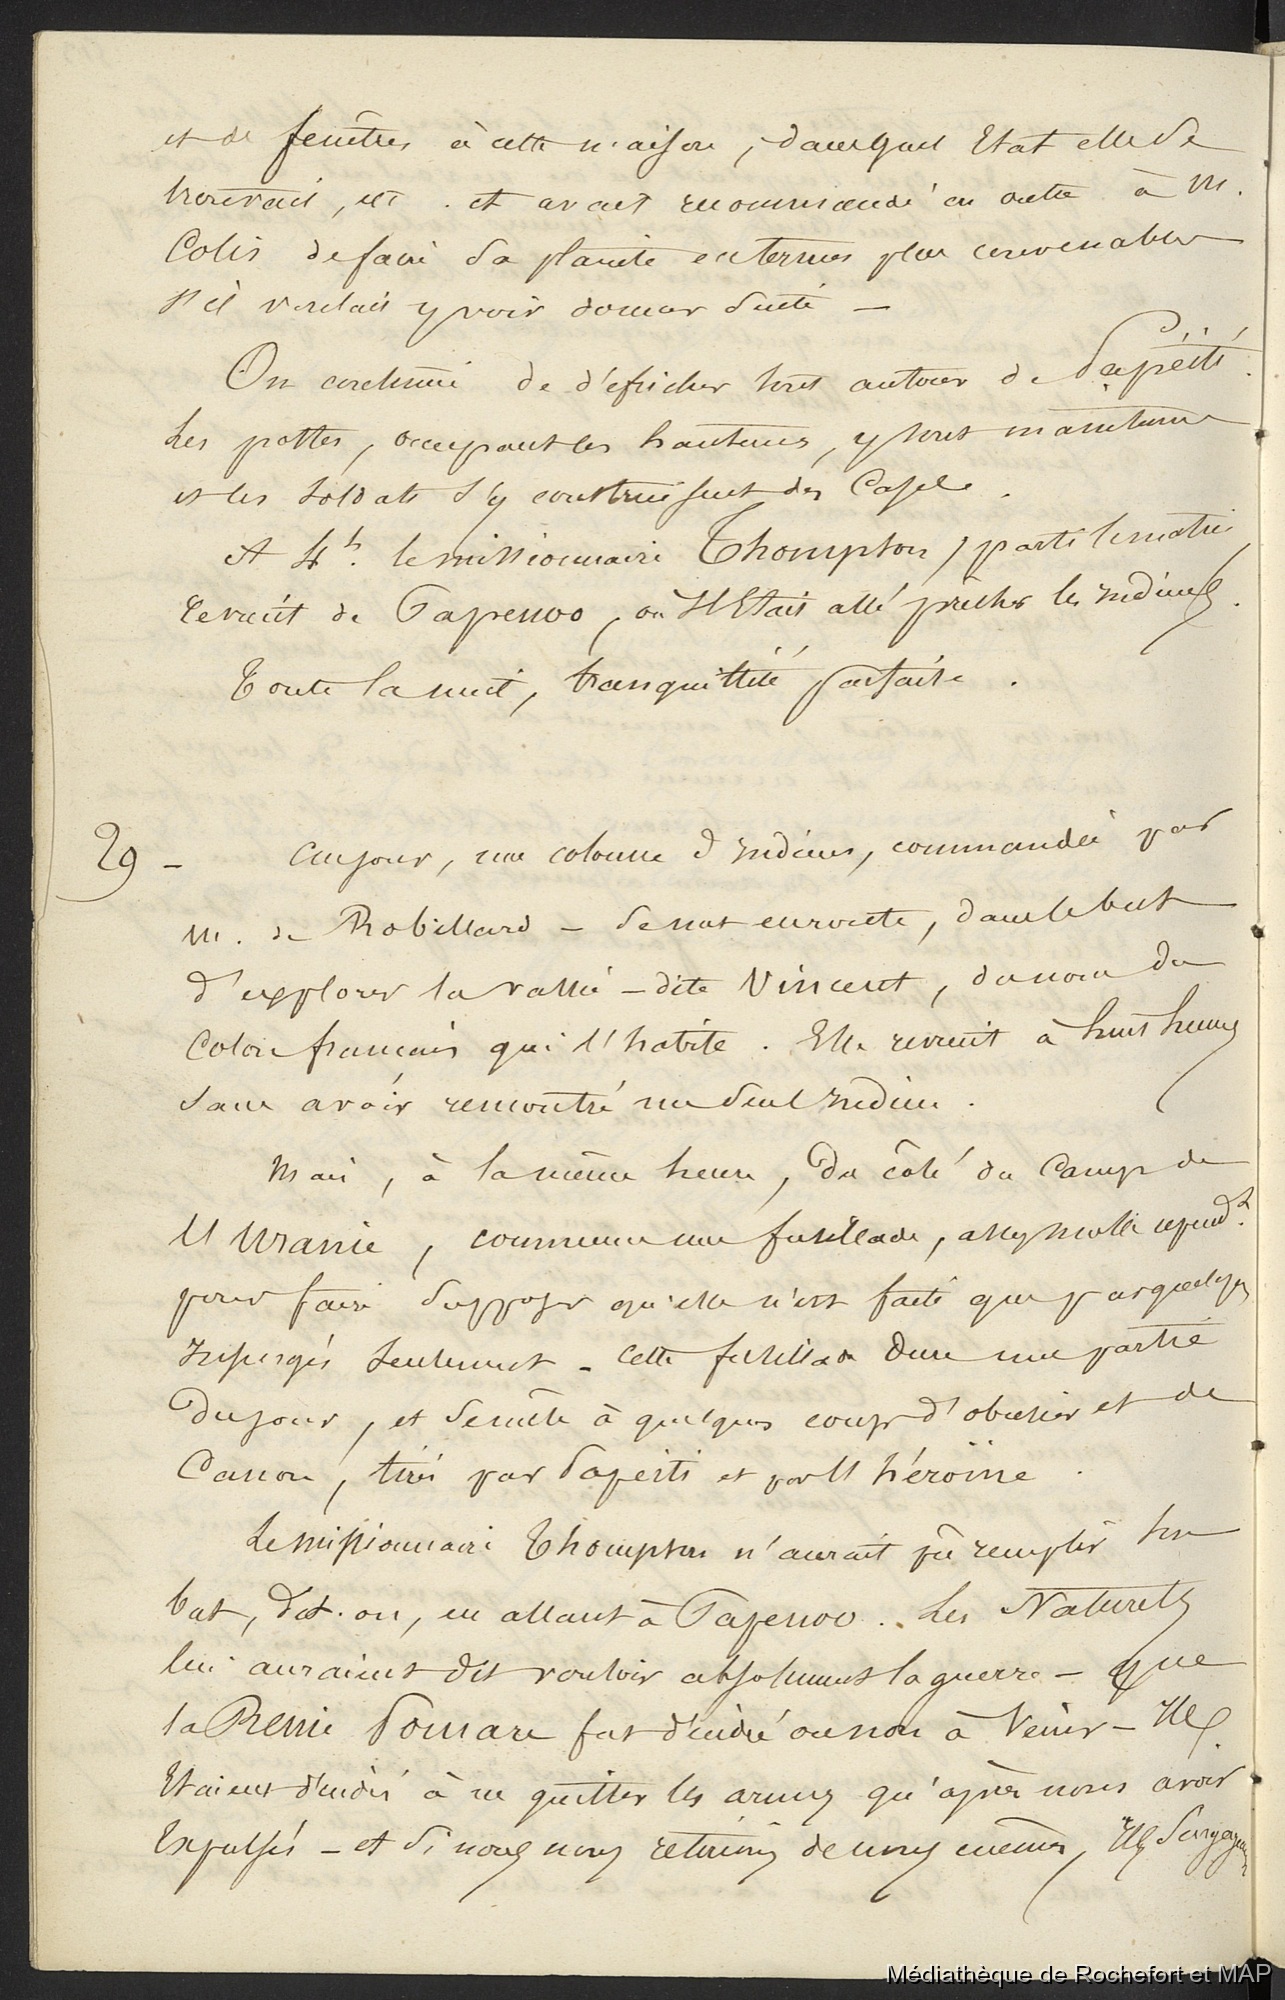 et de fenêtres à cette maison, dans quel Etat elle se
trouvait, etc. et avait recommandé en outre à M.
Colis de faire sa plainte en termes plus convenables
s'il voulait y voir donner suite —
On continue de défricher tout autour de Papéiti.
Les postes, occupant les hauteurs, y sont maintenus
et les soldats s'y construisent des Cases.
A 4h. le missionnaire Thompson, parti le matin
revient de Papenoo, où Il Etait allé prêcher les Indiens.
Toute la nuit, tranquillité parfaite.
29 — Au jour, une colonne d'Indiens, commandée par
M. de Robillard — se met en route, dans le but
d'explorer la vallée — dite Vincent, du nom du
Colon français qui l'habite. Elle revient à huit heures
sans avoir rencontré un seul Indien.
Mais, à la même heure, Du côté du Camp de
l'Uranie, commence une fusillade, assez molle cepend.t
pour faire supposer qu'elle n'est faite que par quelques
Insurgés seulement — cette fusillade Dure une partie
Du jour, et se mêle à quelques coups d'obusier et de
Canon, tirés par Papeiti et par l'héroïne.
Le missionnaire Thompson n'aurait pû remplir son
but, dit-on, en allant à Papenoo. Les Naturels
lui auraient dit vouloir absolument la guerre — que
la Reine Pomare fut décidée ou non à Venir — Ils
Etaient décidés à ne quitter les armes qu'après nous avoir
Expulsés — et si nous nous retirions de nous mêmes, Ils
Médiathèque de Rochefort et MAP